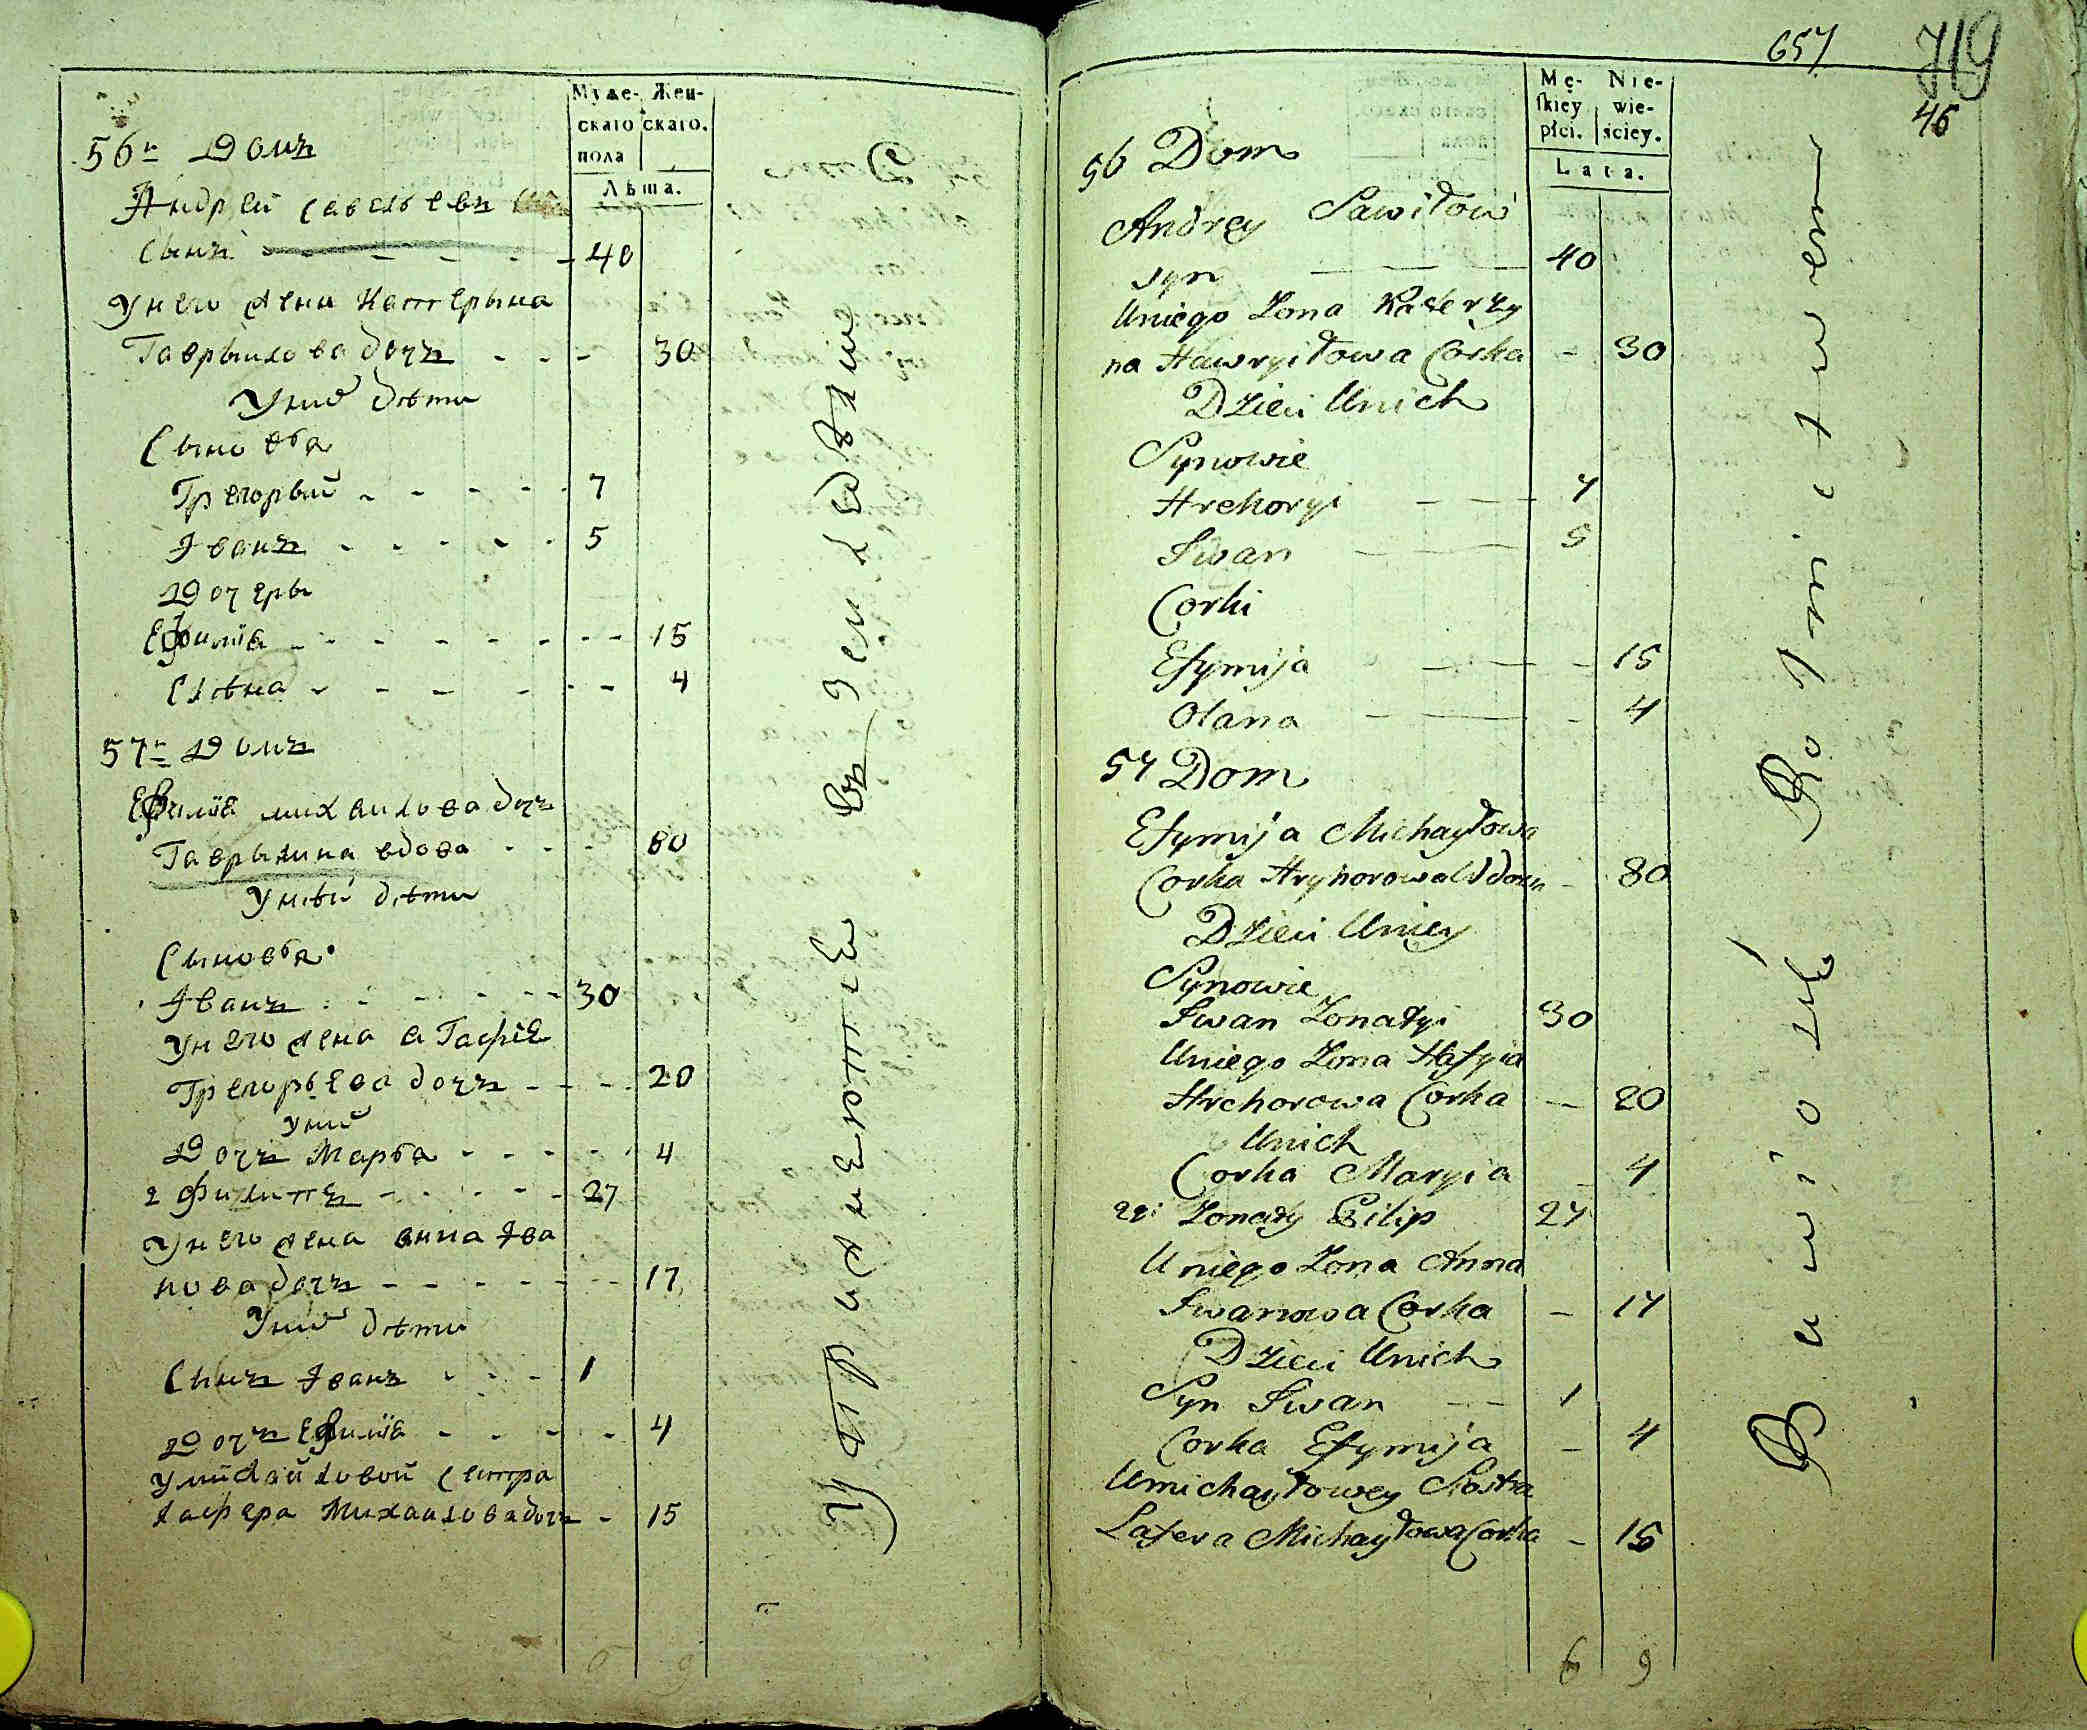 Муже- Жен-
скаго скаго.
пола
Лѣта.
56й Домъ
Андрей Савельевъ
Сынъ - - - - 40
Унего жена Катерына
Гаврылова дочъ - - - 30
Унихъ дѣти
Сыновья
Грегорый - - - - - 7
Иванъ - - - - - 5
Дочеры
Ефимія - - - - - - - - 15
Елѣна - - - - - - 4
57й Домъ
Ефимія михаилова дочъ
Гаврылина вдова - - - 80
Унѣй дѣти
Сыновья
Иванъ - - - - - - 30
Унего жена агафіе
Грегорьева дочъ - - - - 20
Уних
Дочъ Марья - - - - - 4
2 Филипъ - - - - - 27
Унего жена анна Ива
нова дочъ - - - - - - - 17
Уних дѣти
Сынъ Иванъ - - - - 1
Дочъ Ефимія - - - - 4
Умихайловой Сестра
Михаилова дочъ - 15
Упражнение въ Земледѣлии
6 9
657
719
46
Mę- Nie-
skiey wie-
płci. ściey.
Lata.
56 Dom
Andrey Sawiłow
syn — — — 40
Uniego Zona Katerzy
na Hawryiłowa Corka - 30
Dzieci Unich
Synowie
Hrehoryi — — — 7
Iwan — — 5
Corki
Efymija — — - 15
Olana — — - 4
57 Dom
Efymija Michayłowa
Corka Hryhorowa Wdowa - 80
Dzieci Uniey
Synowie
Iwan Zonatyi 30
Uniego Zona Hafyia
Hrehorowa Corka — 20
Unich
Corka Maryia - 4
2gi Zonaty Filip 27
Uniego Zona Anna
Iwanowa Corka — 17
Dzieci Unich
Syn Iwan — — 1
Corka Efymija — 4
Umichayłowey Siostra
Lafera Michayłowa Corka - 15
Bawiące Rolnictwem
6 9